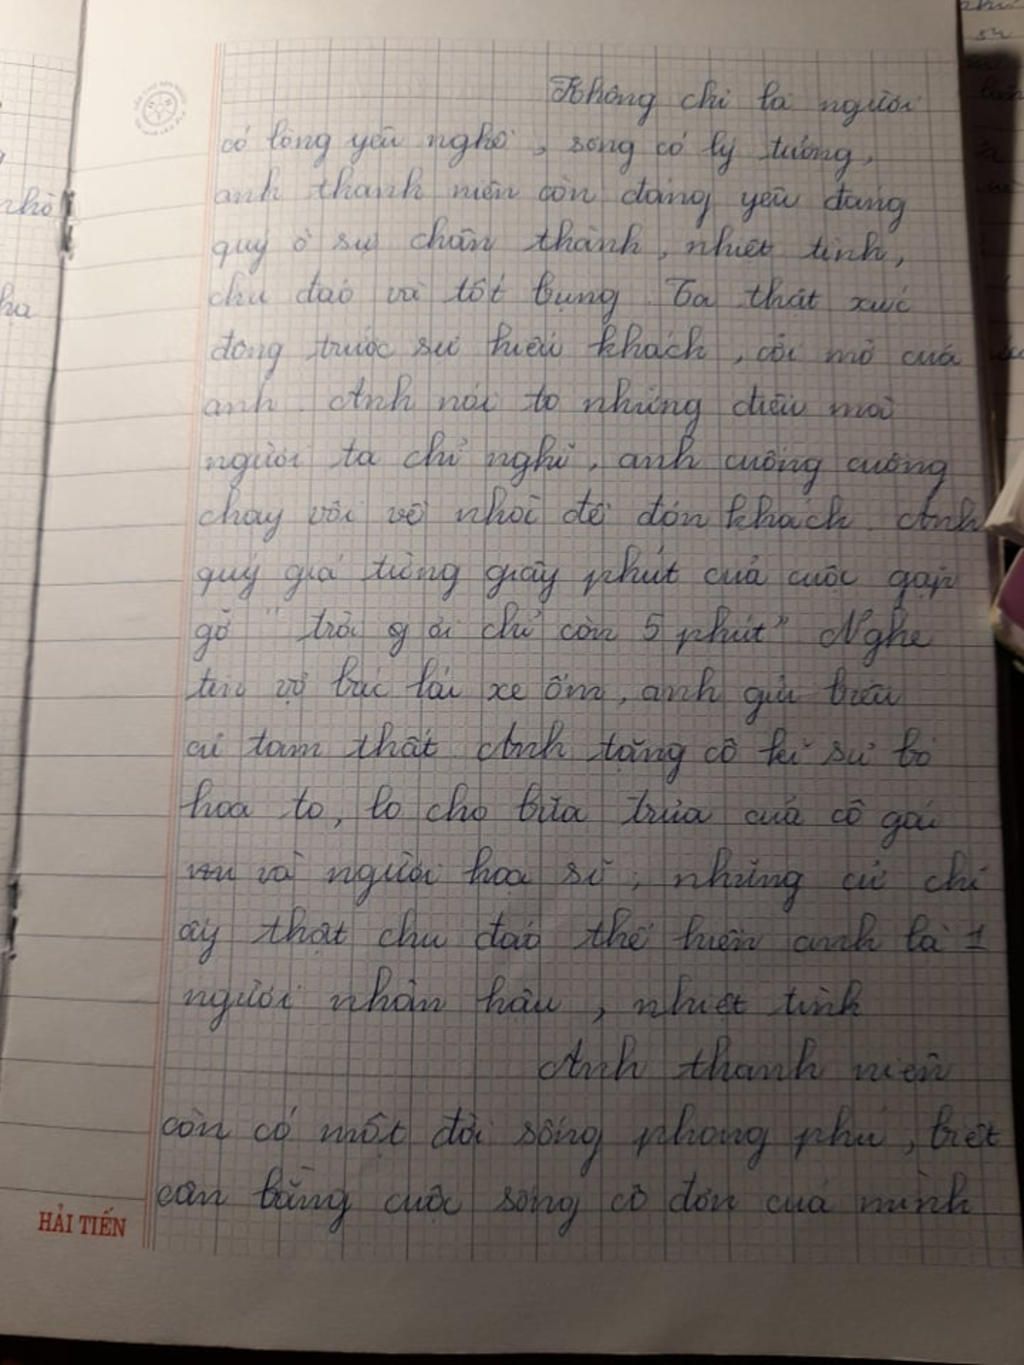 Không chỉ là người
có lòng yêu nghề, sống có lý tưởng,
anh thanh niên còn đáng yêu đáng
quý ở sự chân thành, nhiệt tình,
chu đáo và tốt bụng. Ta thật xúc
động trước sự hiếu khách, cởi mở của
anh. Anh nói to những điều mà
người ta chỉ nghĩ, anh cuống cuồng
chạy vội về nhà để đón khách. Anh
quý giá từng giây phút của cuộc gặp
gỡ "trời ơi chỉ còn 5 phút" Nghe
tin vợ bác lái xe ốm, anh gửi biếu
củ tam thất. Anh tặng cô kĩ sư bó
hoa to, lo cho bữa trưa của cô gái
và người họa sĩ, những cử chỉ
ấy thật chu đáo thể hiện anh là 1
người nhân hậu, nhiệt tình
Anh thanh niên
còn có một đời sống phong phú, biết
cân bằng cuộc sống cô đơn của mình
HẢI TIẾN
nhỏ